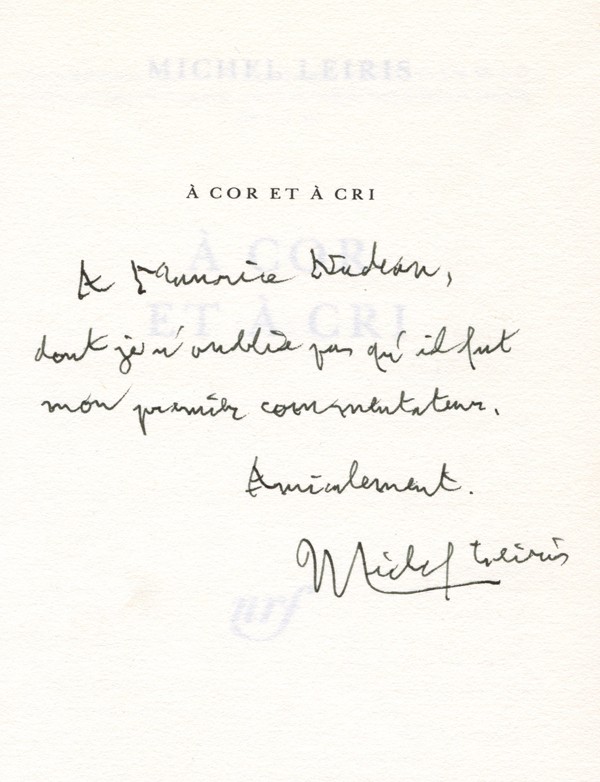 MICHEL LEIRIS
À COR ET À CRI
À COR
A Maurice Nadeau,
ET À CRI
dont je n'oublie pas qu'il fut
mon premier commentateur.
Amicalement.
Michel Leiris
nrf